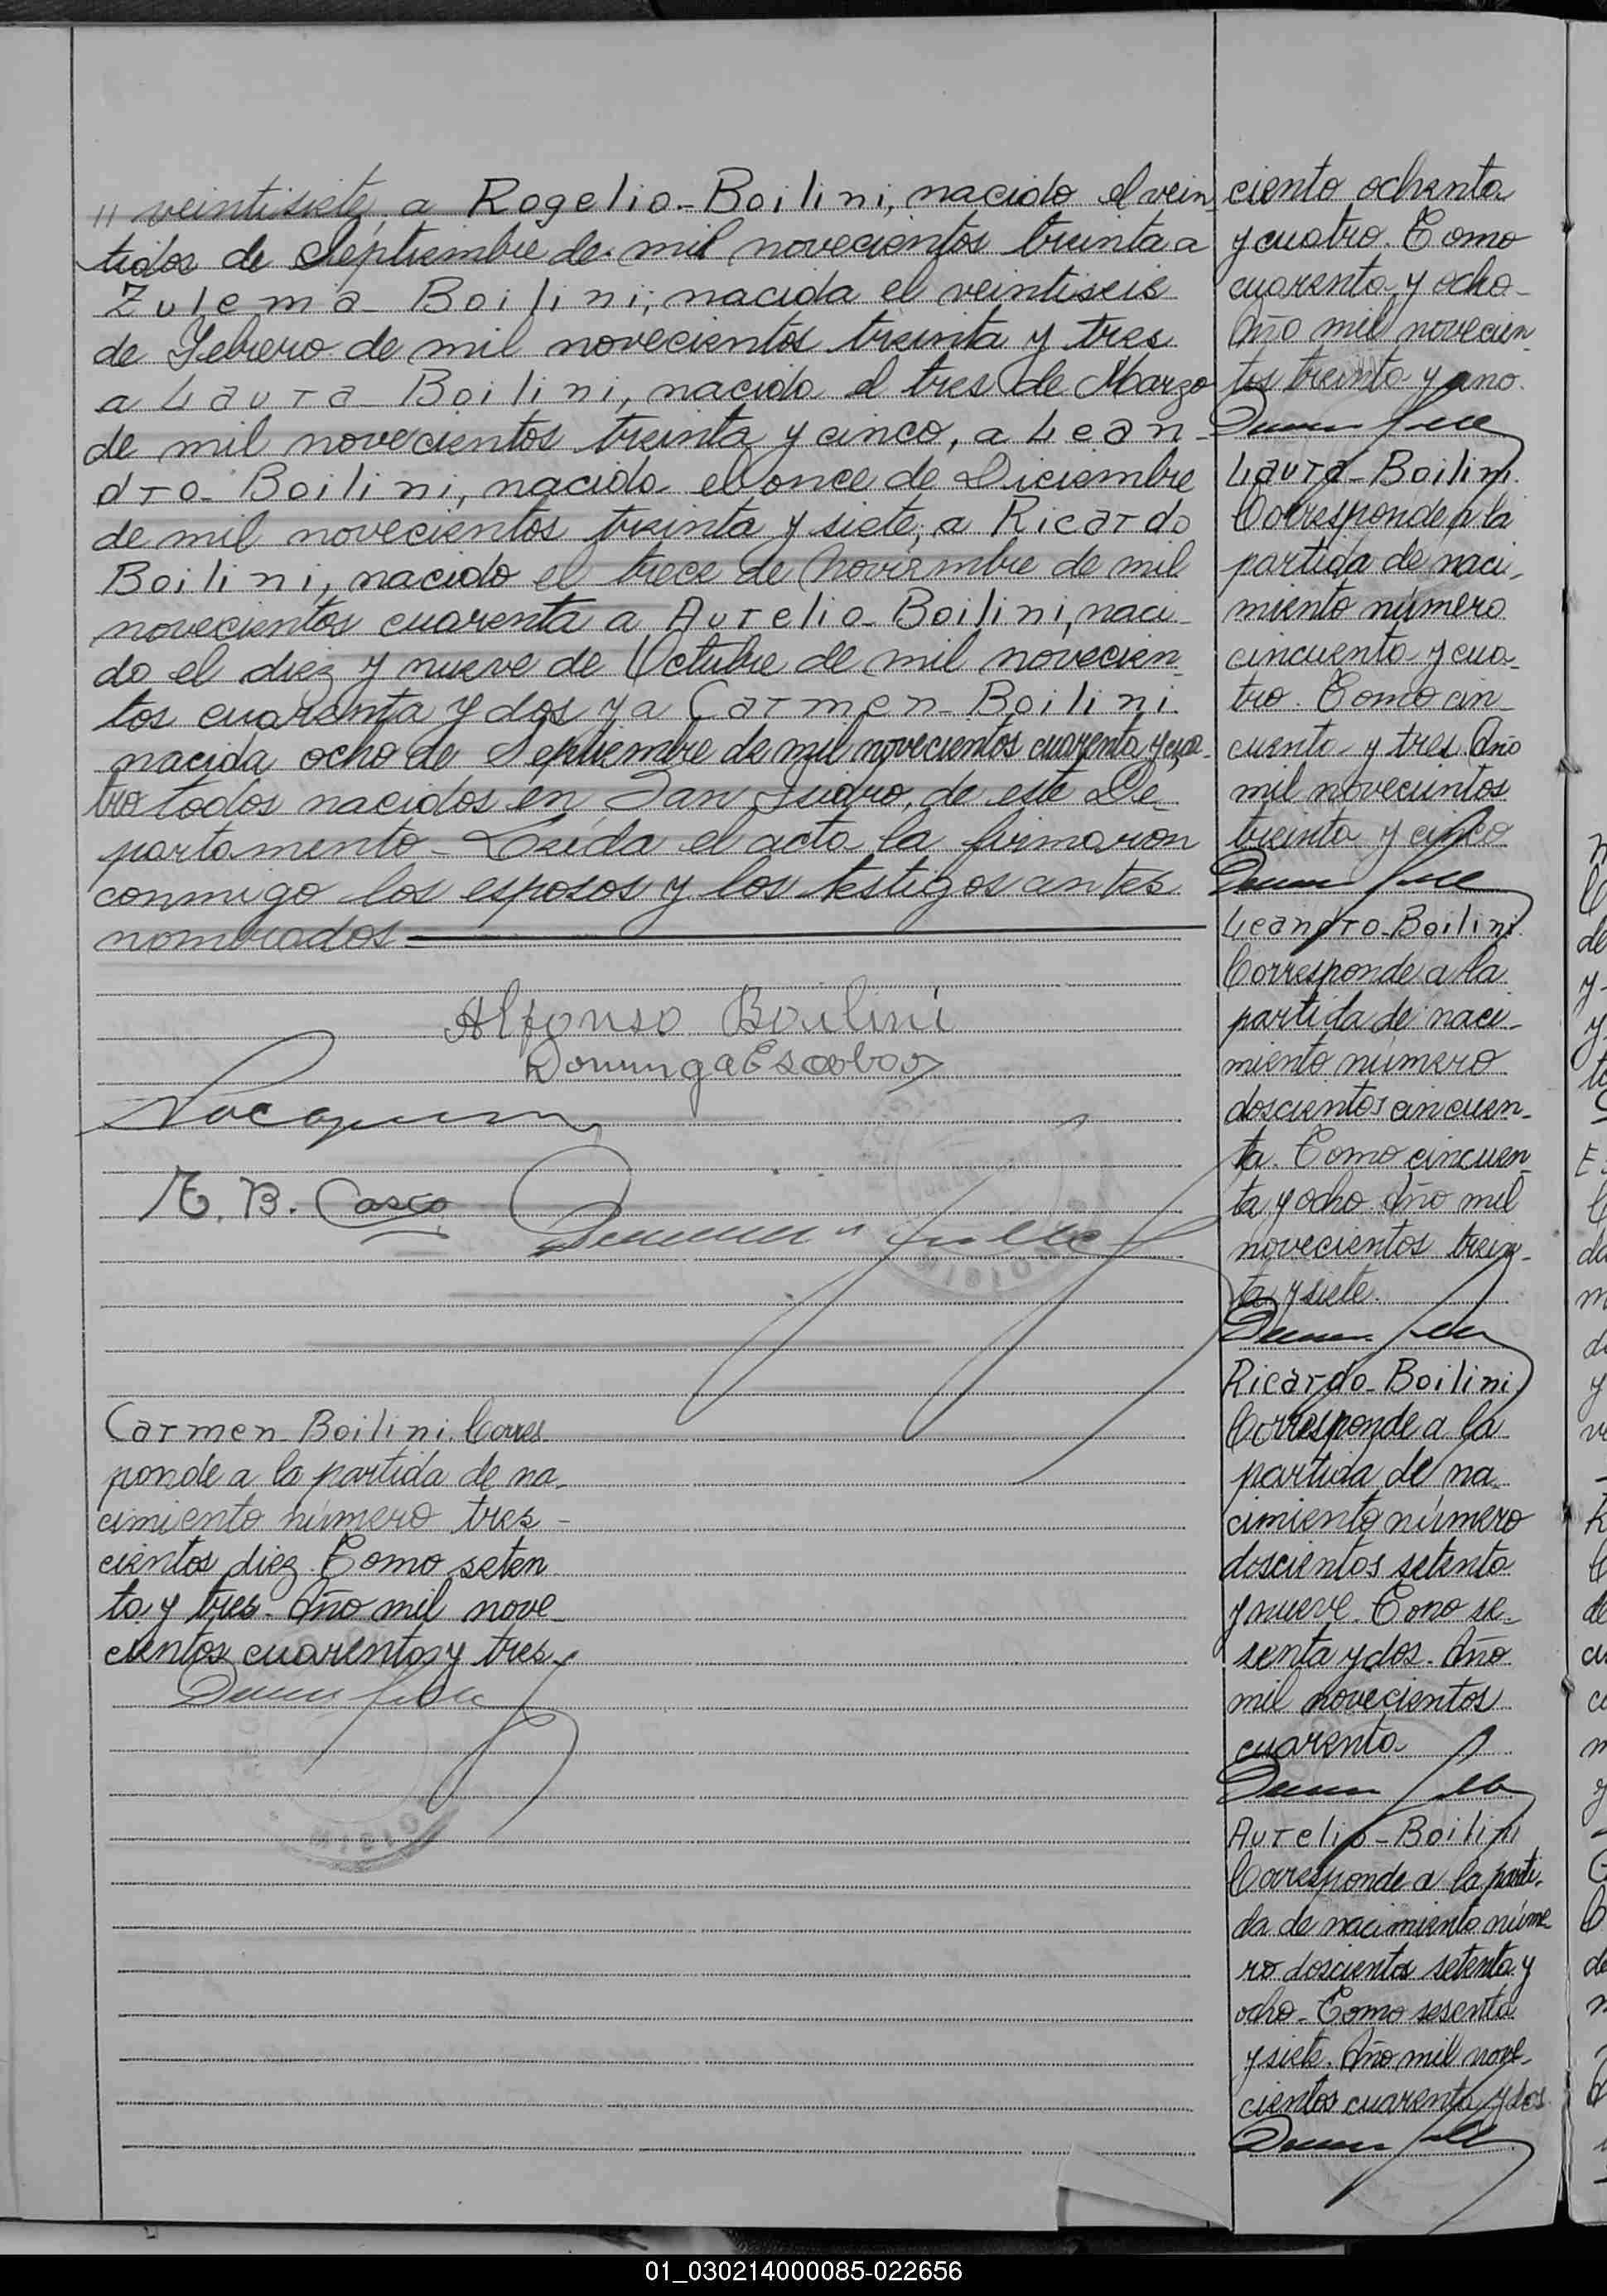 " veintisiete, a Rogelio-Boilini, nacido el vein
tidos de Septiembre de mil novecientos treinta a
Zulema-Boilini; nacida el veintiseis
de Febrero de mil novecientos treinta y tres
a Laura-Boilini, nacido el tres de Marzo
de mil novecientos treinta y cinco, a Lean-
dro-Boilini, nacido el once de Diciembre
de mil novecientos treinta y siete, a Ricardo
Boilini, nacido el trece de Noviembre de mil
novecientos cuarenta a Aurelio-Boilini, naci-
do el diez y nueve de Octubre de mil novecien-
tos cuarenta y dos y a Carmen-Boilini
nacida ocho de Septiembre de mil novecientos cuarenta y cua-
tro todos nacidos en San Isidro, de este De-
partamento-Leída el acta la firmaron
conmigo los esposos y los testigos antes
nombrados
Alfonso Boilini
Dominga Escobar
M. B. Casco
Carmen-Boilini. Corres-
ponde a la partida de na-
cimiento número tres-
cientos diez. Tomo seten
ta y tres. Año mil nove-
cientos cuarenta y tres
ciento ochenta
y cuatro. Tomo
cuarenta y ocho-
Año mil novecien-
tos treinta y uno.
Laura-Boilini.
Corresponde a la
partida de naci-
miento número
cincuenta y cua-
tro. Tomo cin-
cuenta y tres Año
mil novecientos
treinta y cinco
Leandro-Boilini
Corresponde a la
partida de naci-
miento número
doscientos cincuen-
ta. Tomo cincuen-
ta y ocho Año mil
novecientos trein-
ta y siete.
Ricardo-Boilini
Corresponde a la
partida de na-
cimiento número
doscientos setenta
y nueve. Tomo se-
senta y dos. Año
mil novecientos
cuarenta
Aurelio-Boilini
Corresponde a la parti-
da de nacimiento núme-
ro doscientos setenta y
ocho-Tomo sesenta
y siete. Año mil nove-
cientos cuarenta y dos
01_030214000085-022656